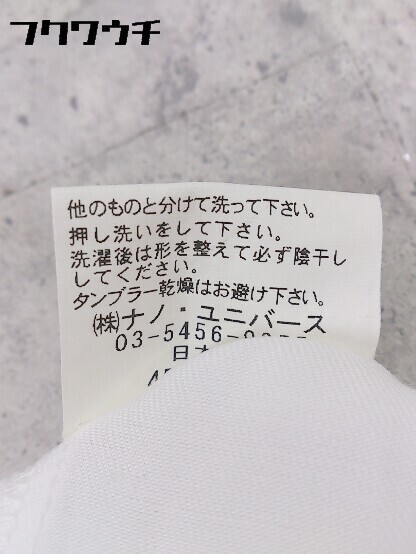 フクワウチ
他のものと分けて洗って下さい。
押し洗いをして下さい。
洗濯後は形を整えて必ず陰干し
してください。
タンブラー乾燥はお避け下さい。
(株)ナノ・ユニバース
03-5456-
日本